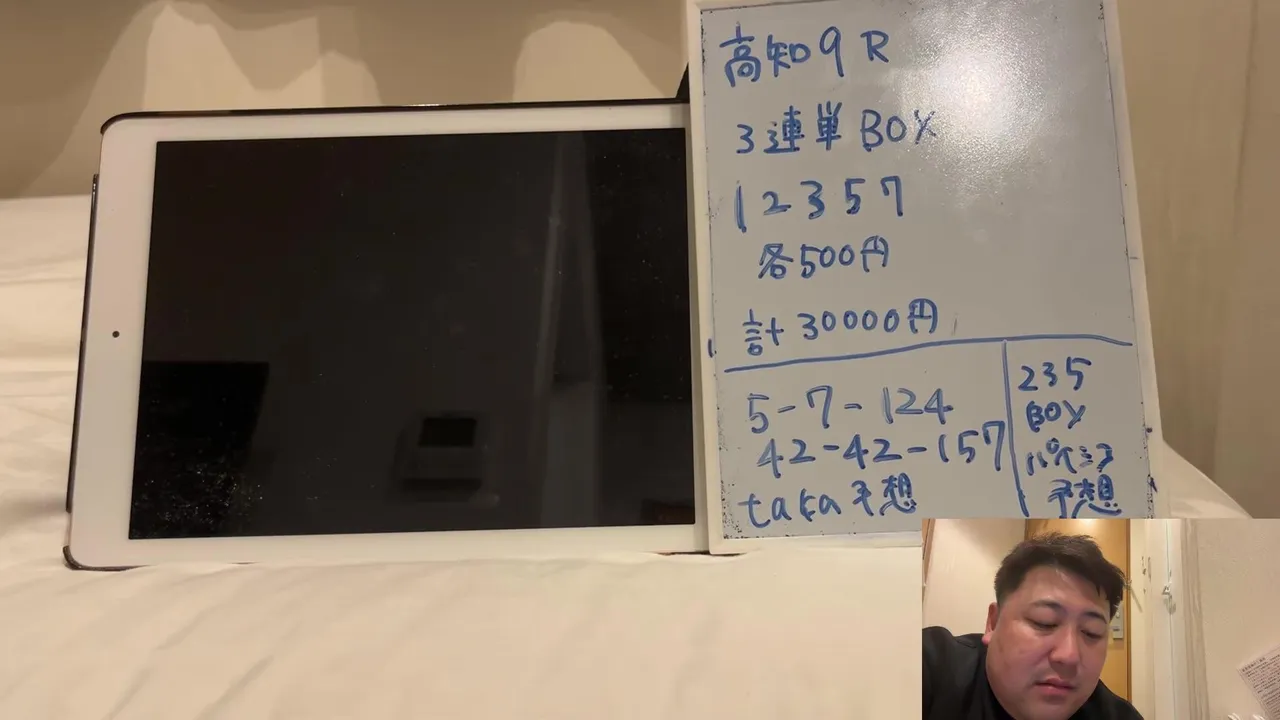 高知9R
3連単BOX
12357
各500円
計30000円
5-7-124
42-42-157
taka予想
235
BOX
パイシア
予想